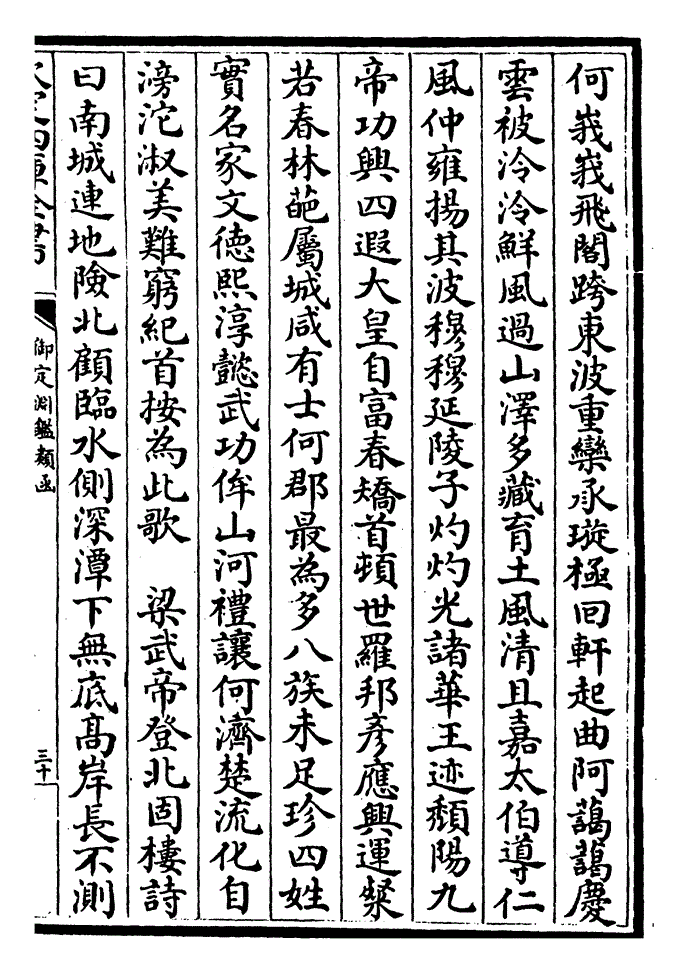 何峩峩飛閣跨東波重欒承璇極回軒起曲阿藹藹慶
雲被泠泠鮮風過山澤多藏育土風清且嘉太伯導仁
風仲雍揚其波穆穆延陵子灼灼光諸華王迹頽陽九
帝功興四遐大皇自富春矯首頓世羅邦彦應興運粲
若春林葩屬城咸有士何郡最為多八族未足珍四姓
實名家文德熙淳懿武功侔山河禮讓何濟楚流化自
滂沱淑美難窮紀首按為此歌　梁武帝登北固樓詩
曰南城連地險北顧臨水側深潭下無底高岸長不測
御定淵鑑類函
三十